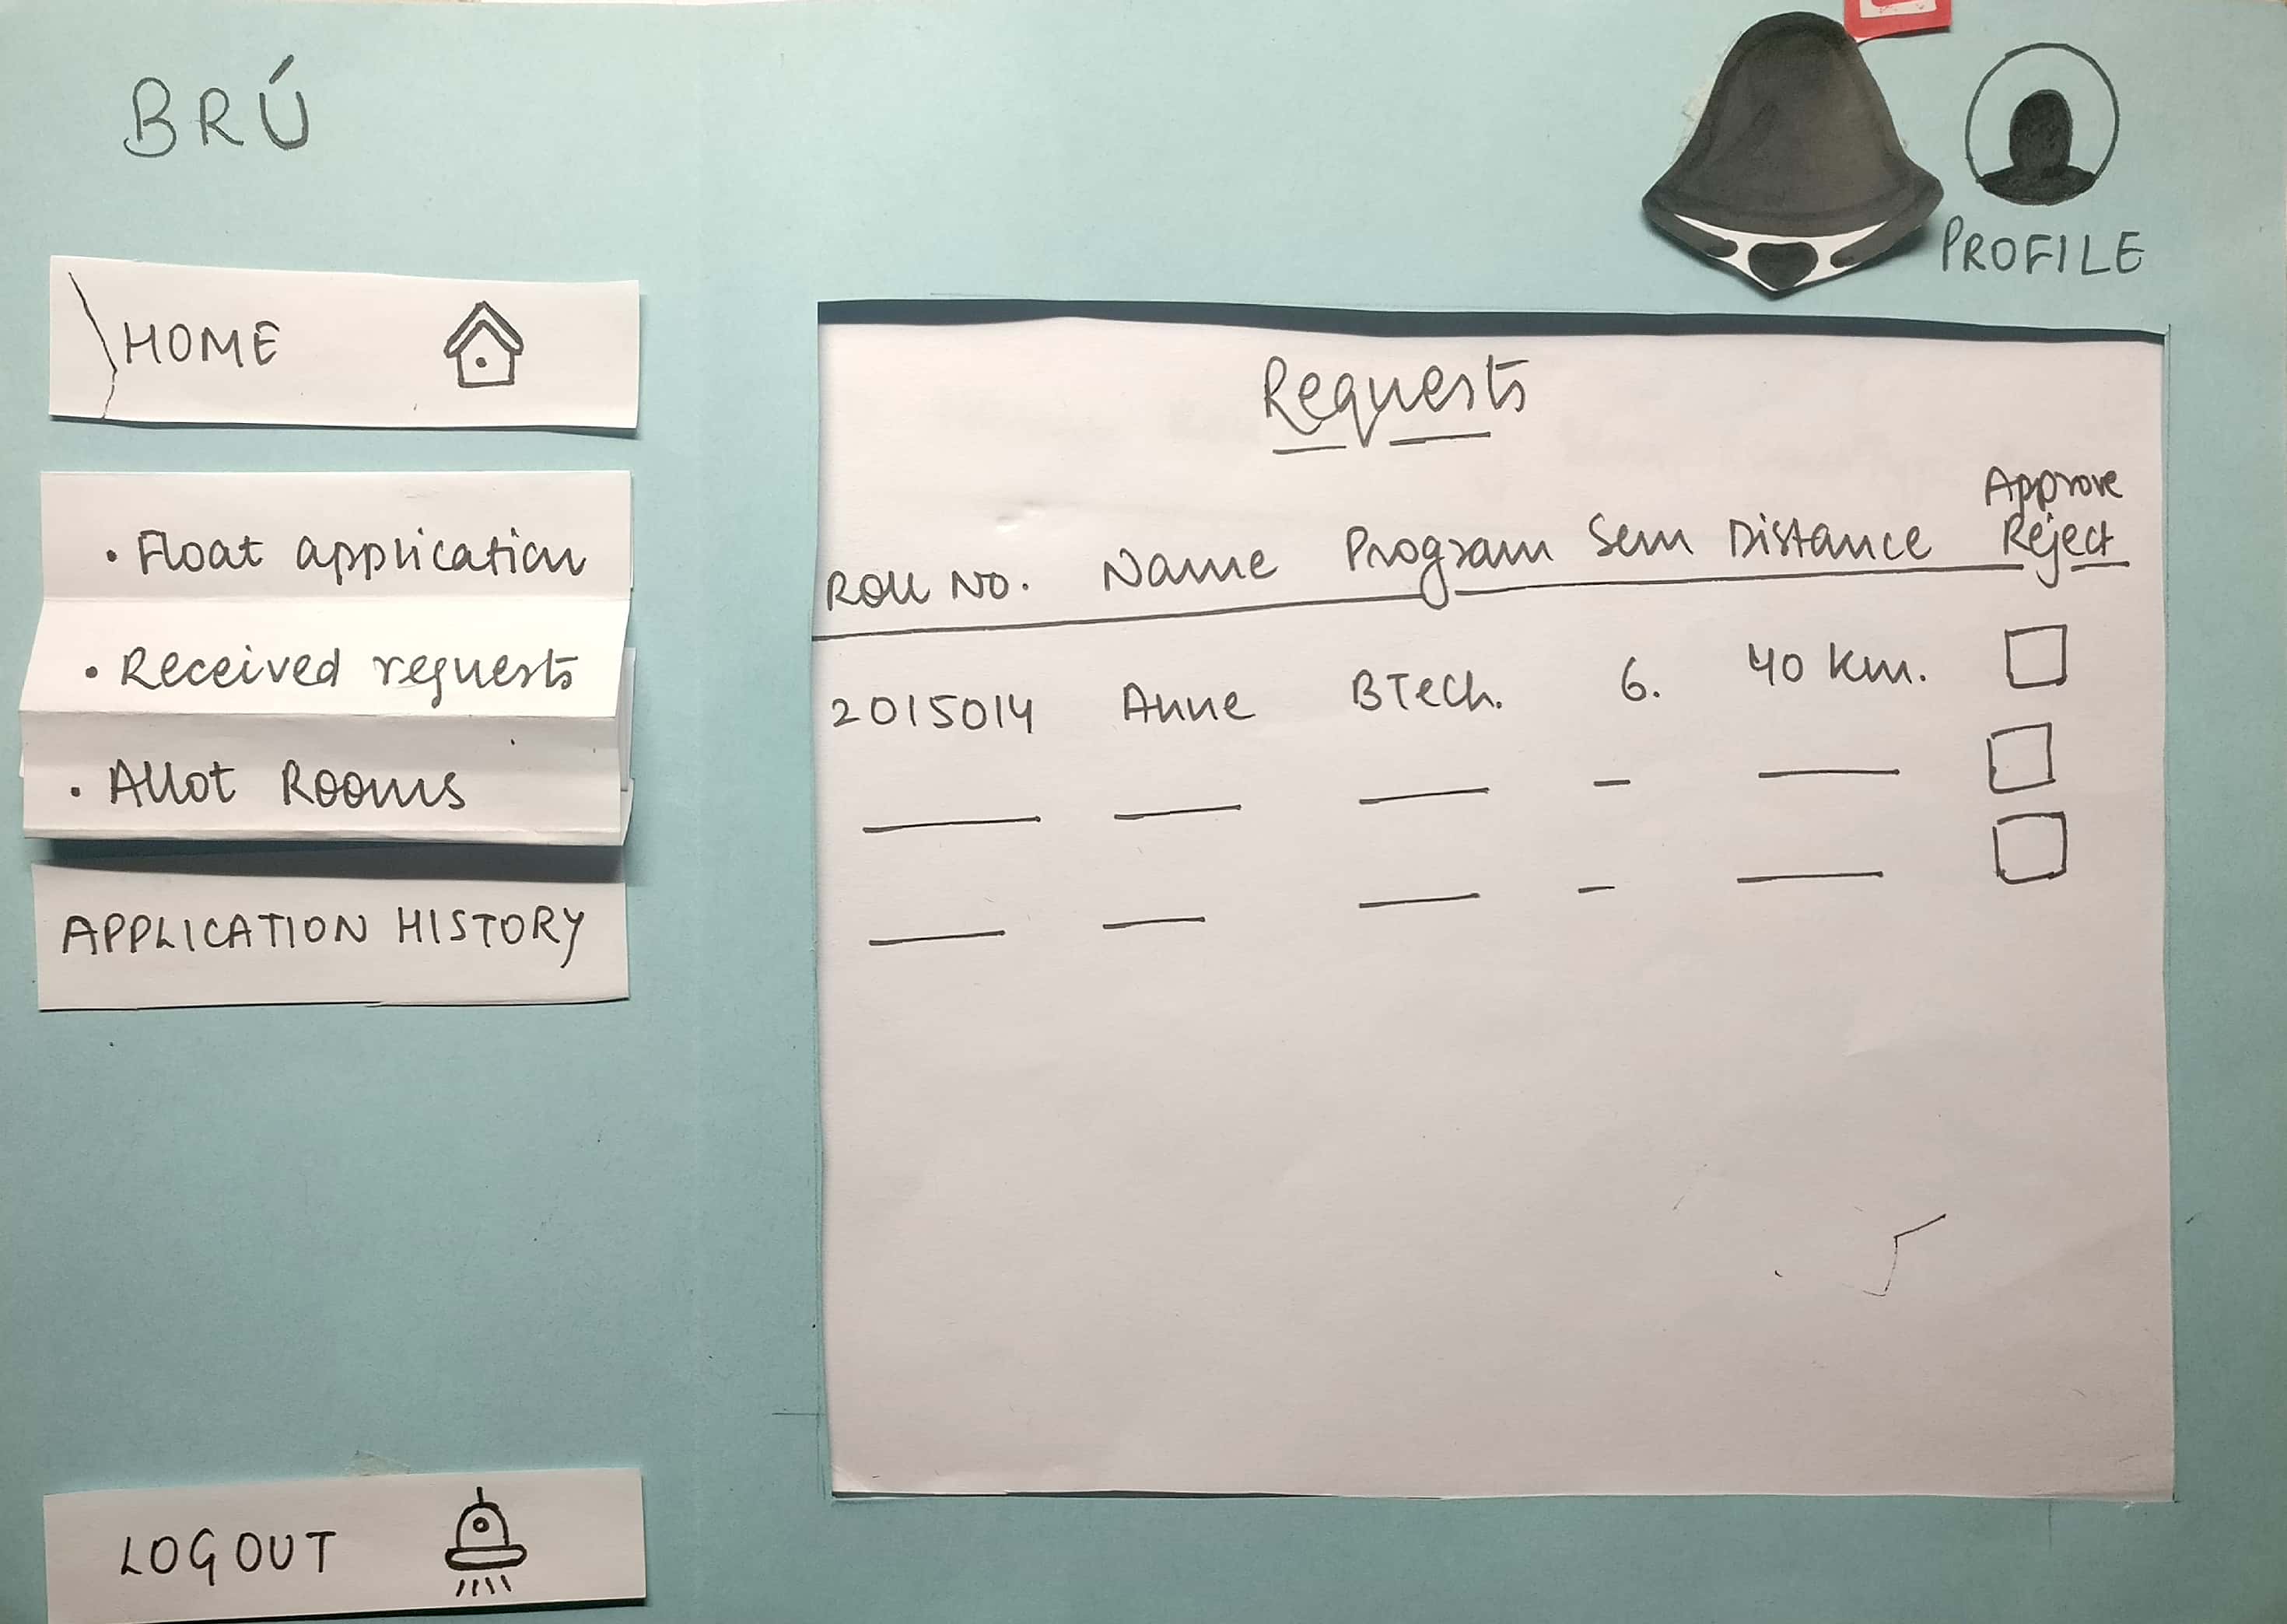 BRÚ
PROFILE
HOME
• Float application
• Received requests
• Allot Rooms
APPLICATION HISTORY
LOGOUT
Requests
Roll No. Name Program Sem Distance Approve Reject
2015014 Anne BTech. 6. 40 km.